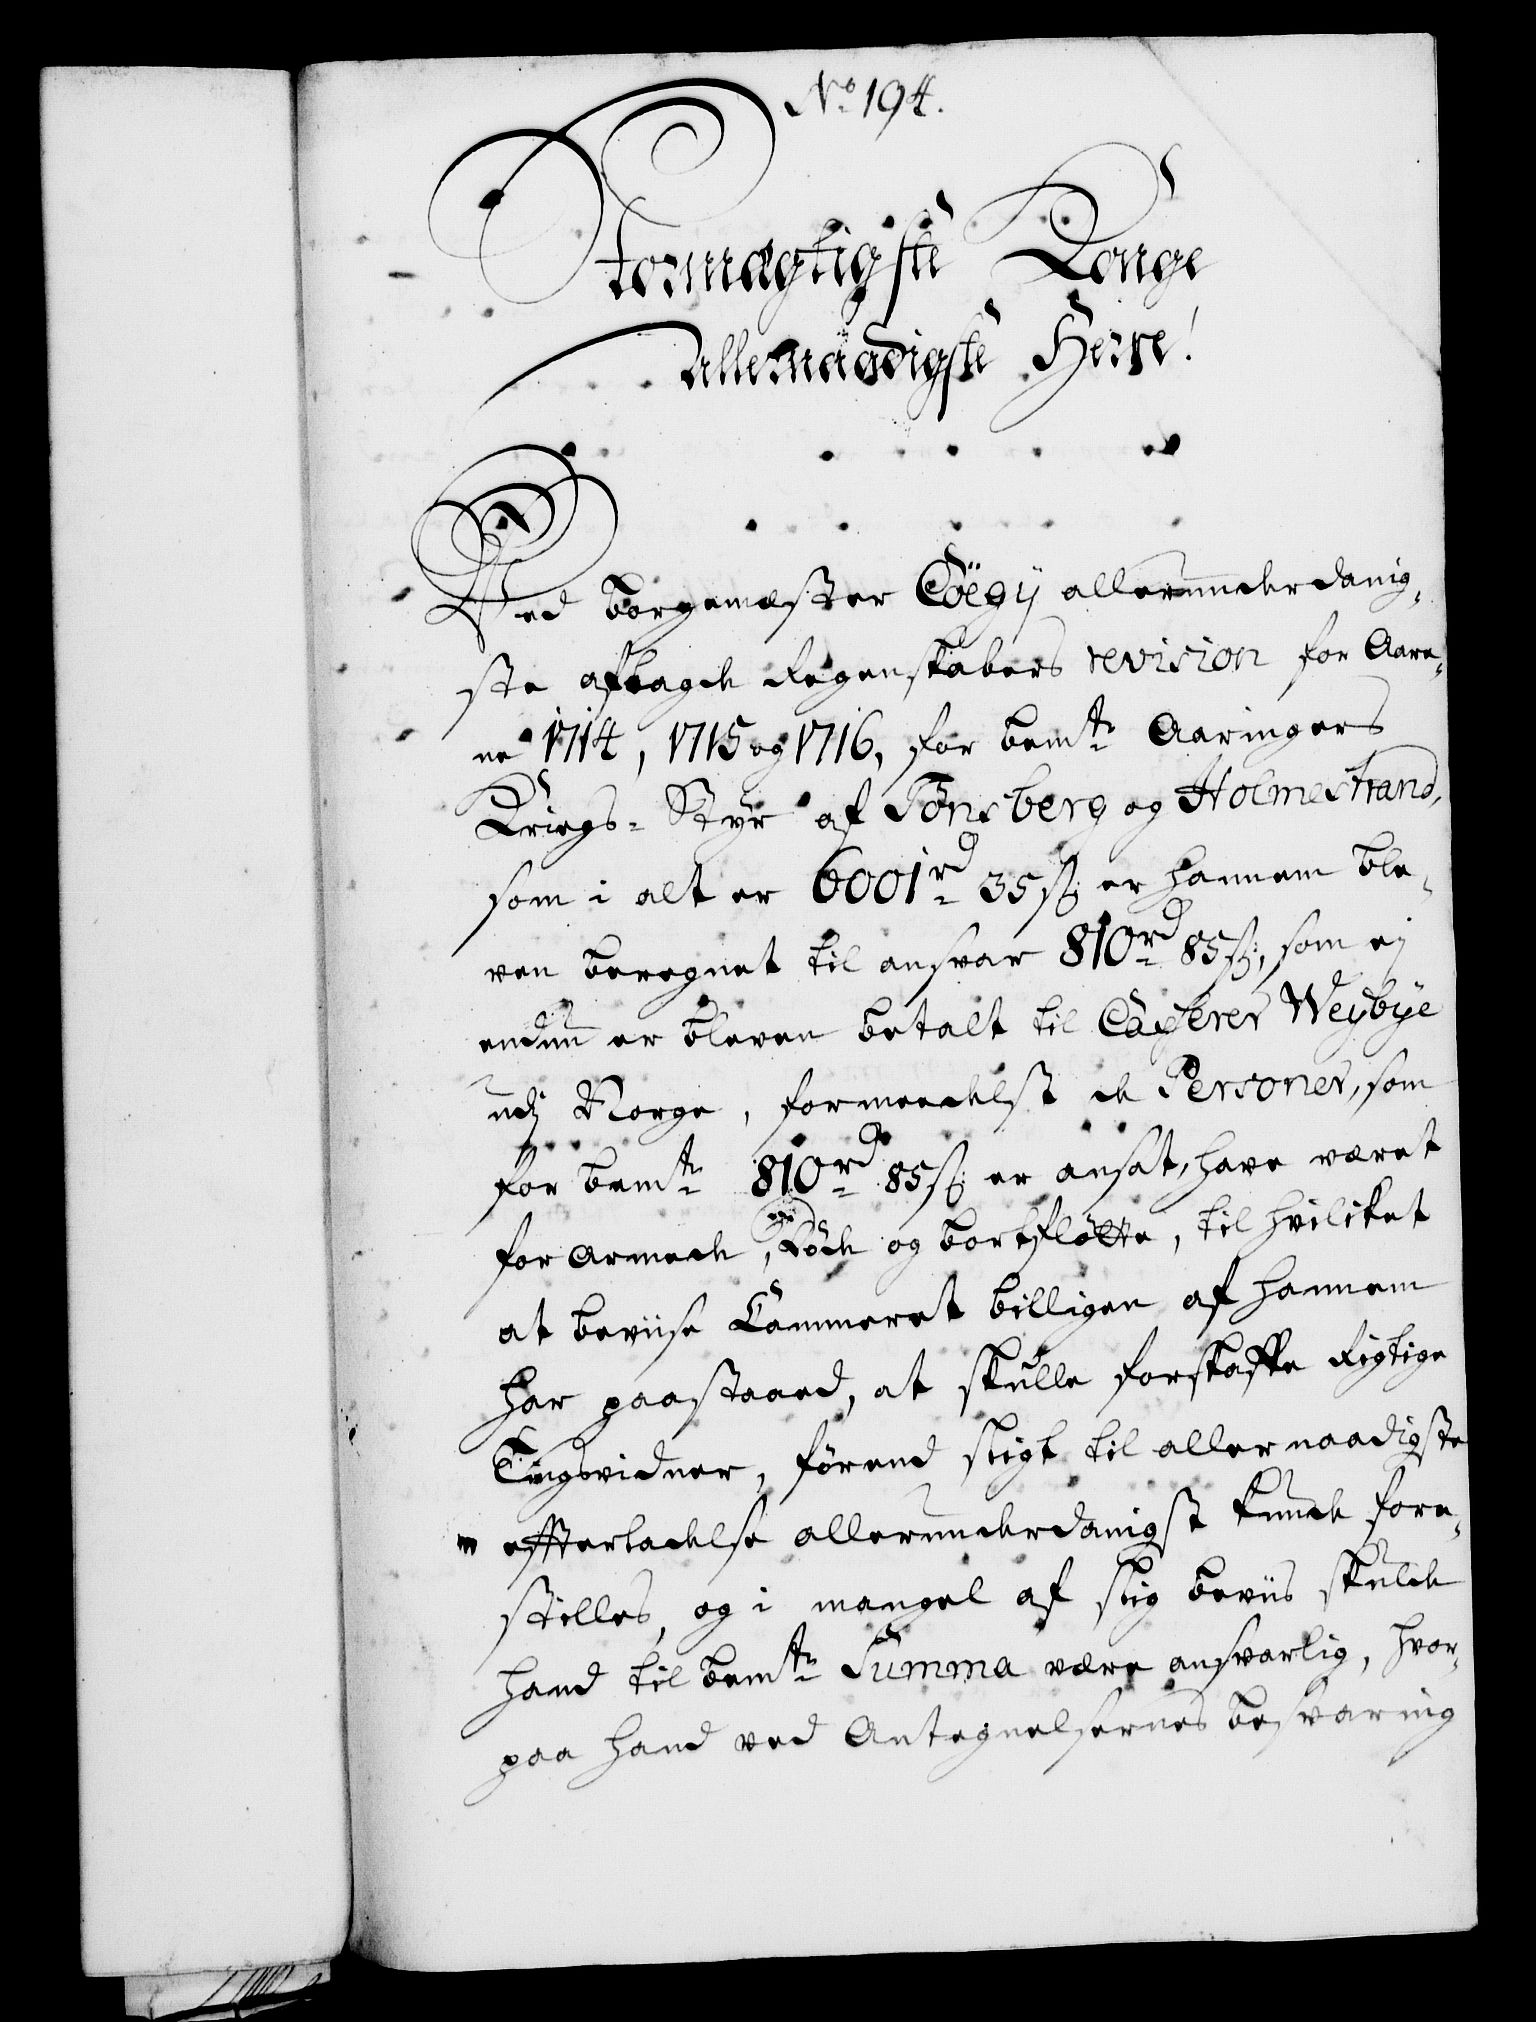 No 194.
Stormægtigste Konge
Allernaadigste Herre!
Ved Borgemæster Cöÿgÿ allerunderdanig-
ste aflagde Regenskabers revision for Aare-
ne 1714, 1715 og 1716, for bemte Aaringers
Kriegs-Styr af Tönsberg og Holmestrand,
som i alt er 6001rd 35 ß er hannem ble-
ven beregnet til ansvar 810rd 85 ß, som ej
endnu er bleven betalt til Casserer Weÿbÿe
udj Norge, formeedelst de Personer, som
for bemte 810rd 85 ß er ansat, have været
forarmede, Döde og bortfløtte, til hvilcket
at beviise Cammeret billigen af hannem
har paastaaed, at skulle forskaffe Rigtige
Tingsvidner, förend sligt til allernaadigste
effterladelse allerunderdanigst kunde fore-
stilles, og i mangel af slig beviis skulde
hand til bemte Summa være ansvarlig, hvor-
paa hand ved Antegnelsernes besvaring